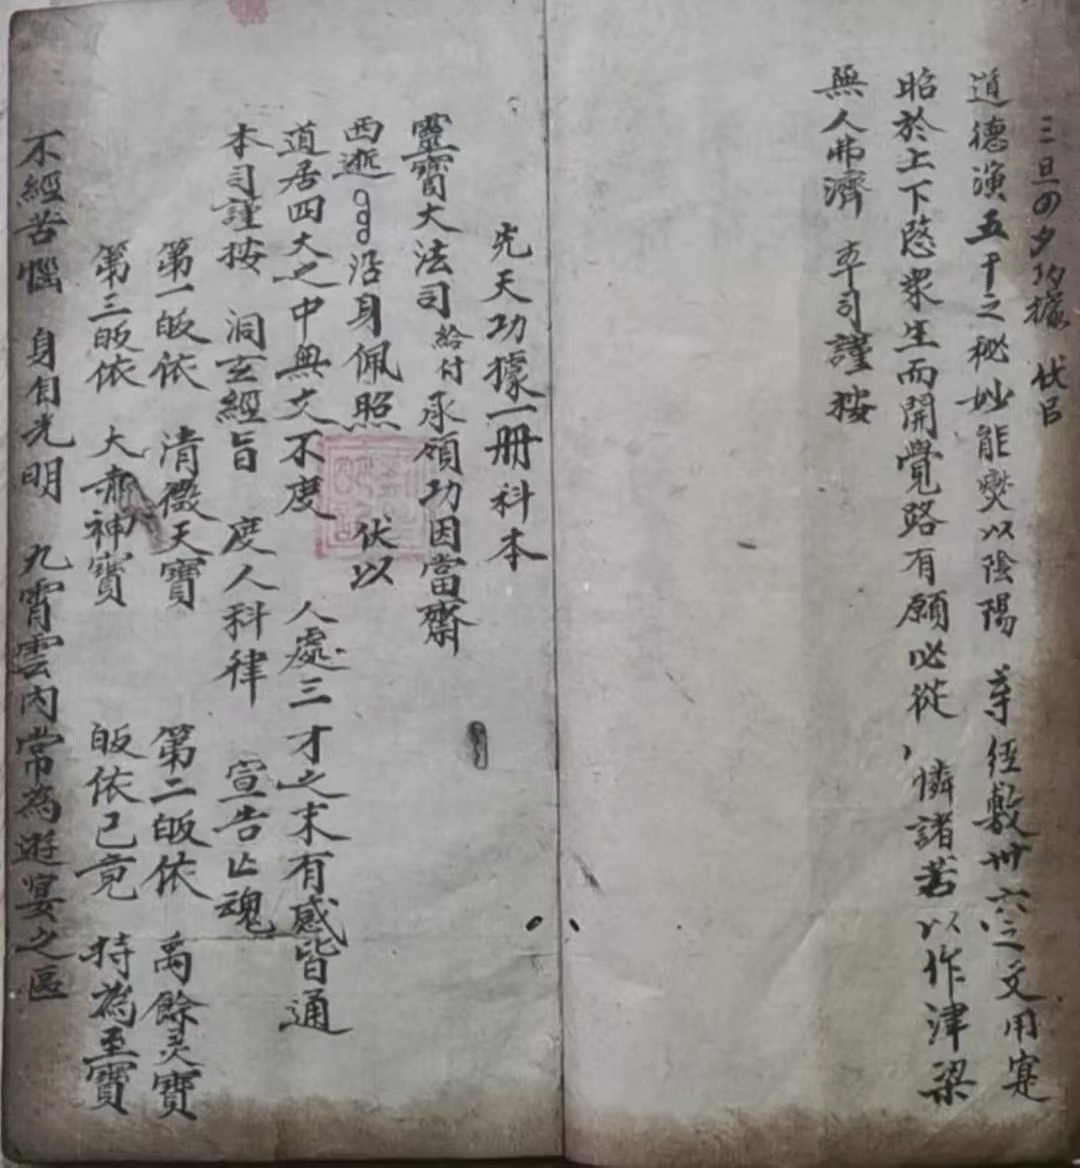 三旦四夕功據 伏㠯
道德演五千之秘妙能爕以陰陽 等經敷卅六之文用寔
昭於上下慈眾生而開覺路有願必從 憐諸苦以作津梁
無人弗濟 本司謹按
先天功據一冊科本
靈寶大法司給付承領功因當齋
西逝 沿身佩照 伏以
道居四大之中無文不度 人處三才之末有感皆通
本司謹按 洞玄經旨 度人科律 宣告亡魂
第一皈依 清微天寶 第二皈依 禹餘灵寶
第三皈依 大赤神寶 皈依已竟 持為至寶
不經苦惱 身有光明 九霄雲內常為遊宴之區